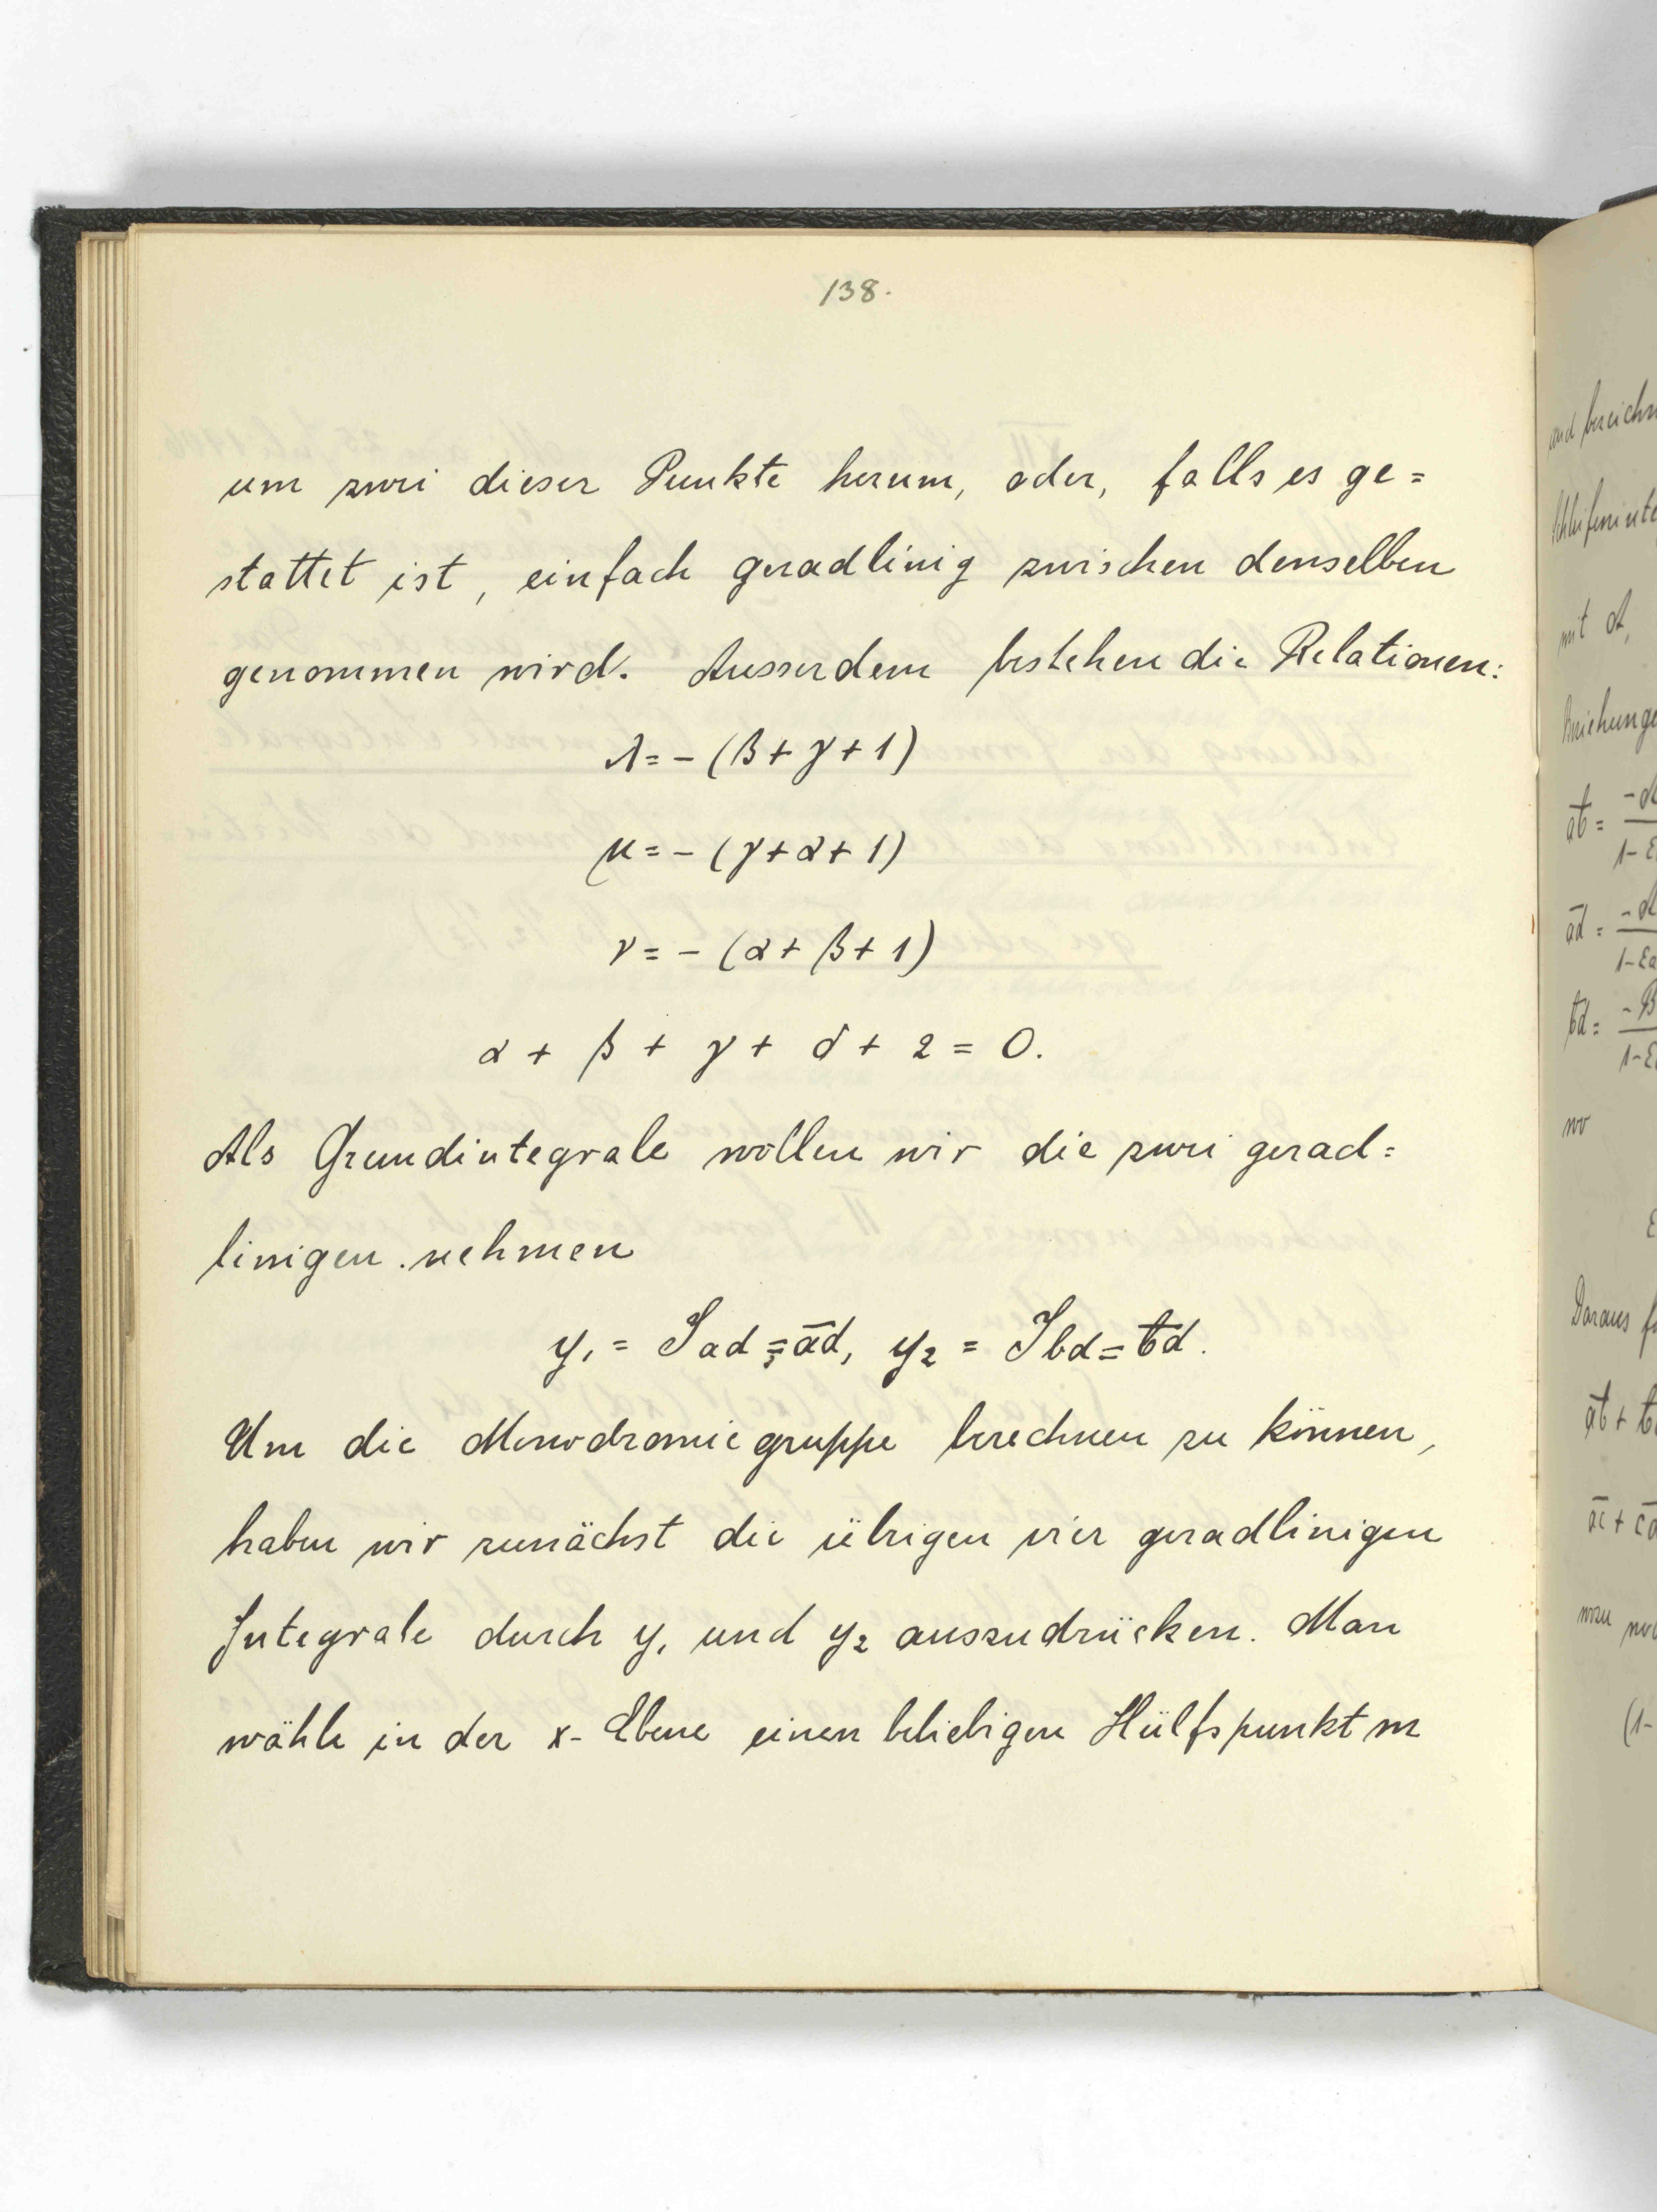 138.
um zwei dieser Punkte herum, oder, falls es ge=
stattet ist, einfach geradlinig zwischen denselben
genommen wird. Ausserdem bestehen die Relationen:
λ = - (β + γ + 1)
μ = - (γ + α + 1)
ν = - (α + β + 1)
α + β + γ + δ + 2 = 0.
Als Grundintegrale wollen wir die zwei gerad=
linigen nehmen
y₁ = Jad = a̅d, y₂ = Jbd = b̅d.
Um die Monodromiegruppe berechnen zu können,
haben wir zunächst die übrigen vier geradlinigen
Integrale durch y₁ und y₂ auszudrücken. Man
wähle in der x-Ebene einen beliebigen Hülfspunkt m
mit A,
wo